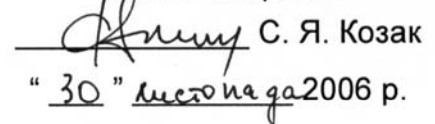 С. Я. Козак
“ 30 ” листопада 2006 р.